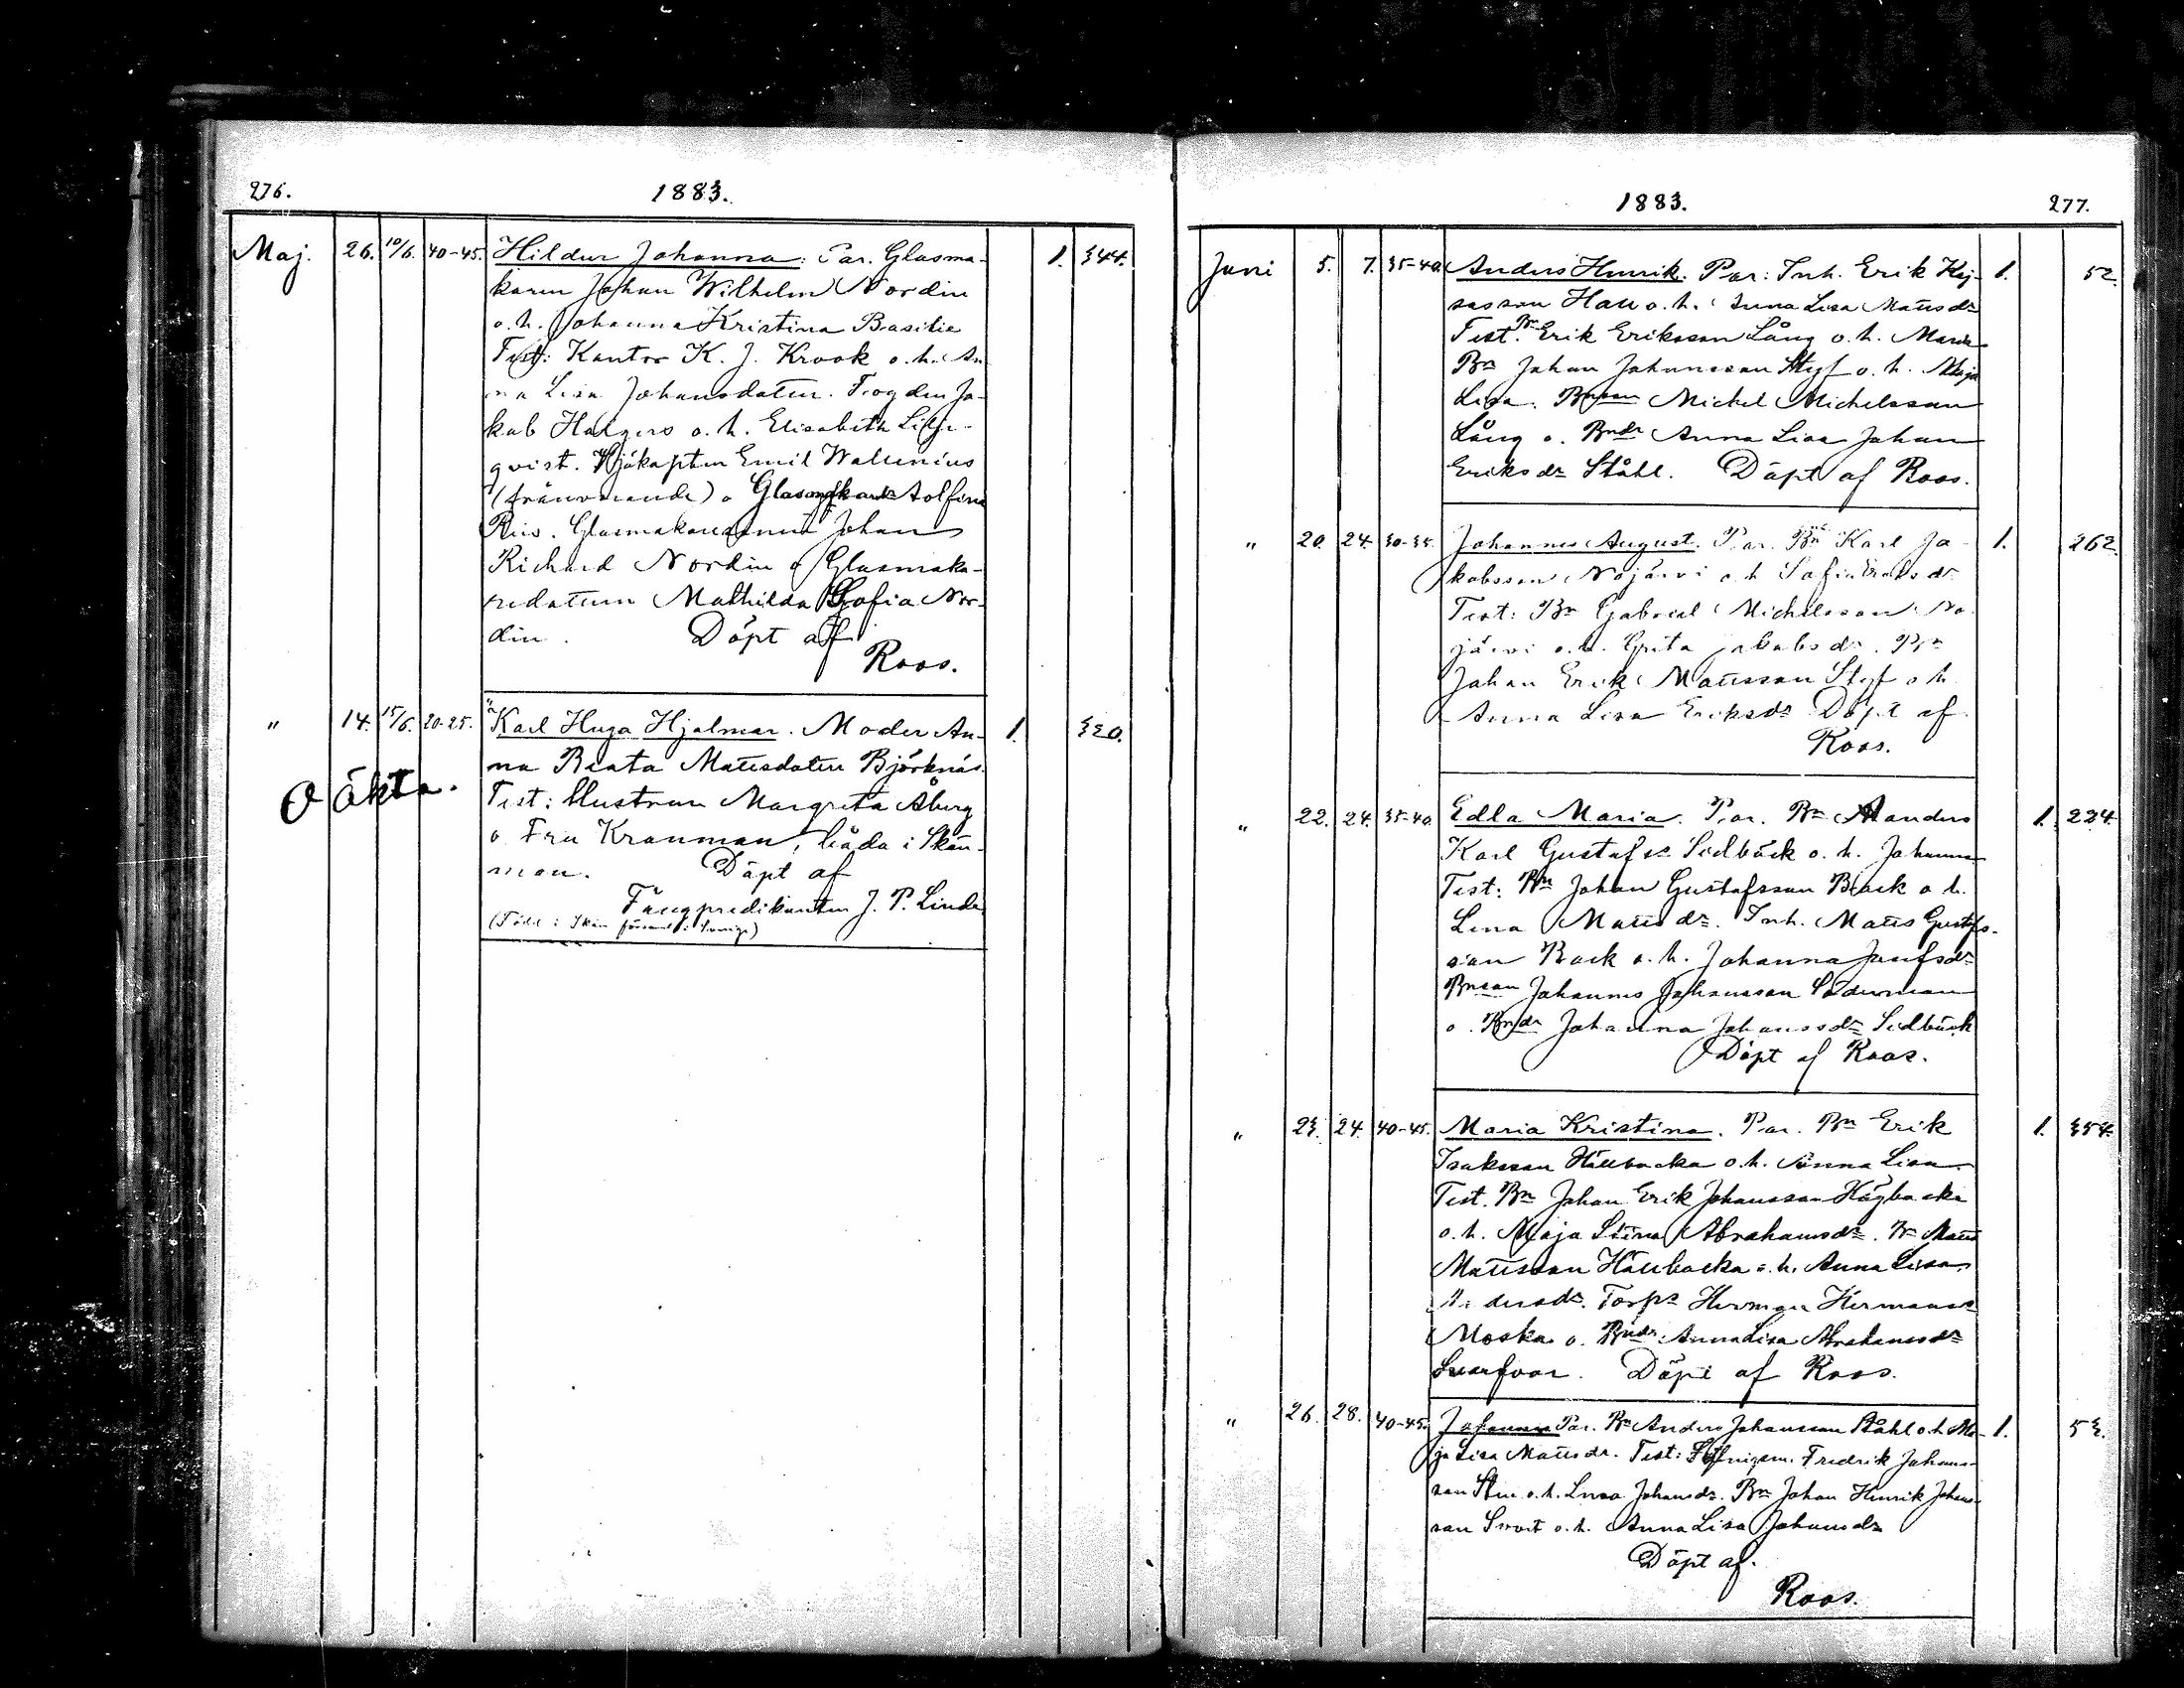 276. 1883.
Maj. 26. 10/6. 40-45. Hildur Johanna: Par. Glasma- 1. 344.
karen Johan Wilhelm Nordin
o. h. Johanna Kristina Basilie
Test: Kantor K. J. Krook o. h. An-
na Lisa Johansdotter.
kab o. h. Elisabeth Lilje-
qvist. Sjökapten Emil Wallenius
(frånvarande) o
Glasmakaresonen Johan
Richard Nordin o Glasmaka-
redottern Mathilda Sofia Nor-
din. Döpt af
Roos.
" 14. 15/6. 20-25. Karl Hugo Hjalmar. Moder An- 1. 320.
na Beata Mattsdotter Björknäs.
Oäkta. Test: Hustrun Margreta Åberg
o Fru Kranman, båda i Skön-
mon. Döpt af
Fängpredikanten J. P. Linde
(Född i Skön församl. i Sverige)
1883. 277.
Juni 5. 7. 35-40. Anders Henrik. Par: Inh. Erik Kaj- 1. 52.
sasson Hall o. h. Anna Lisa Mattsdr
Test. Bn Erik Eriksson Lång o. h. Maria
Bn Johan Johansson Styf o. h. Maja
Lisa. Bnson Mickel Michelsson
Lång o. Bndr Anna Lisa Johan
Eriksdr Ståhl. Döpt af Roos.
" 20. 24. 30-35. Johannes August. Par. Bn Karl Ja- 1. 262
kobsson Nöjärvi o h Sofia Eriksdr
Test: Bn Gabriel Michelsson Nö-
järvi o. h. Greta Jakobsdr. Bn
Johan Erik Mattsson Styf o h
Anna Lisa Eriksdr Döpt af
Roos.
" 22. 24. 35-40 Edla Maria. Par. Bn Anders 1. 224.
Karl Gustafss Sidbäck o. h. Johanna
Test: Bn Johan Gustafsson Back o h.
Lena Mattsdr. Inh. Matts Gustafs-
son Back o. h. Johanna Josefsdr
Bnson Johannes Johansson Söderman
o. Bndr Johanna Johansdr Sidbäck
Döpt af Roos.
" 23. 24. 40-45. Maria Kristina. Par. Bn Erik 1. 354.
Isaksson Hällbacka o. h. Anna Lisa
Test. Bn Johan Erik Johansson Högbacka
o. h. Maja Stina Abrahamsdr. Bn Matts
Mattsson Hällbacka o. h. Anna Lisa
Andersdr. Torpr Herman Hermanss
Moska o. Bndr Anna Lisa Abrahamsdr
Svarfvar. Döpt af Roos.
" 26. 28. 40-45. Johannes Par. Bn Anders Johansson Ståhl o. h. Ma- 1. 53.
ja Lisa Mattsdr. Test: Fredrik Johans-
son o. h. Lovisa Johansdr. Bn Johan Henrik Johans-
son o. h. Anna Lisa Johansdr
Döpt af.
Roos.